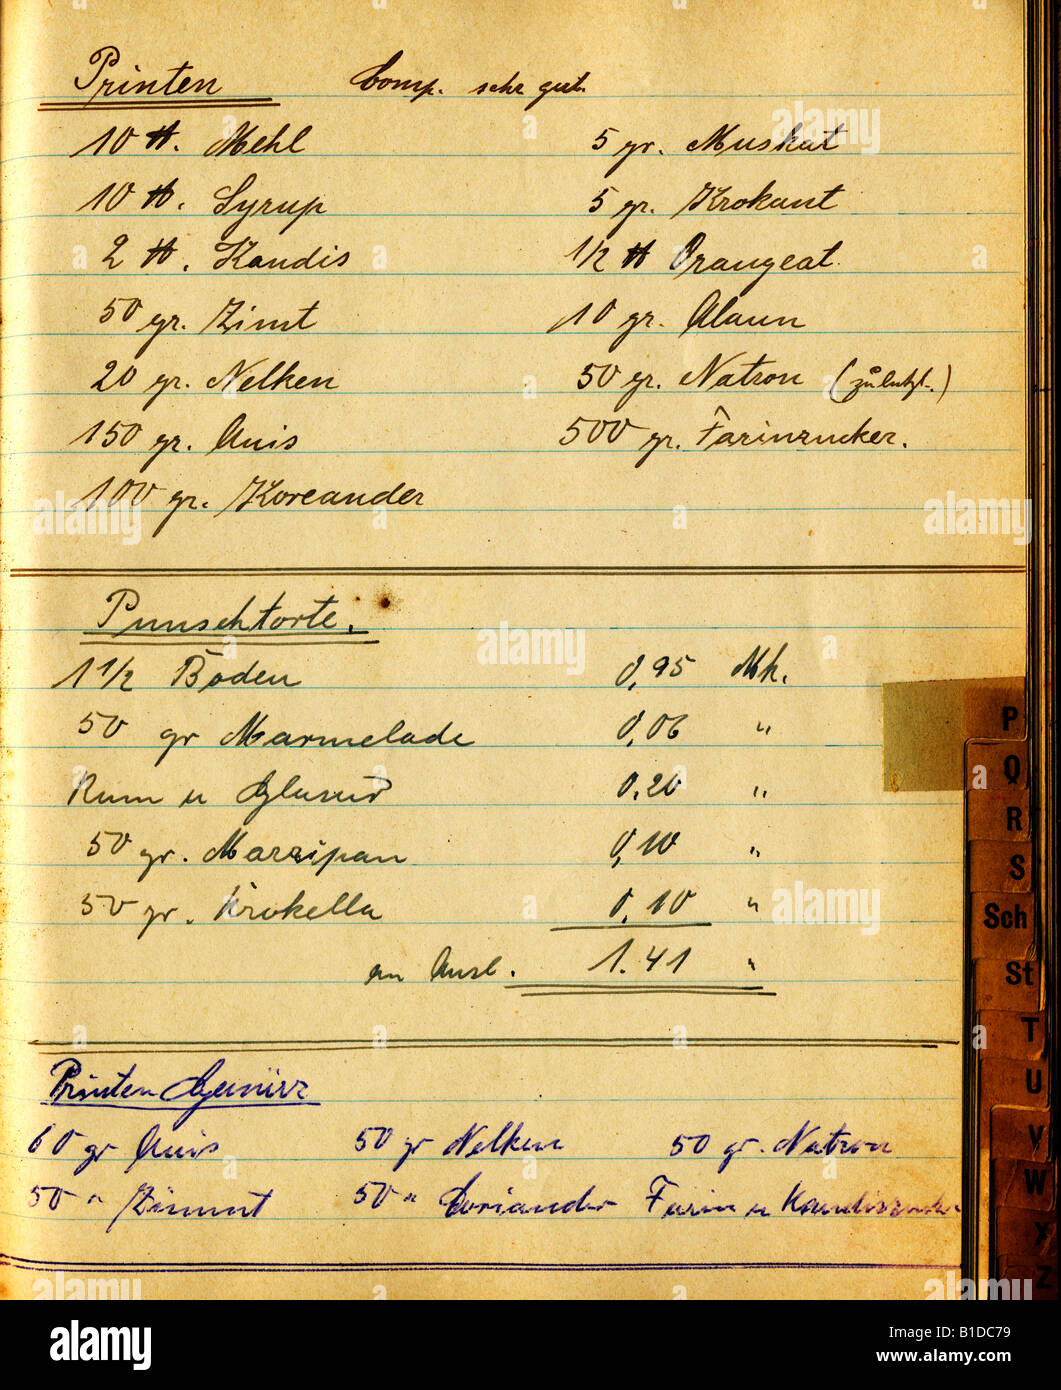 Printen comp. sehr gut.
10 ℔. Mehl 5 gr. Muskat
10 ℔. Syrup 5 gr. Krokant
2 ℔. Kandis 1/2 ℔ Orangeat.
50 gr. Zimt 10 gr. Alaun
20 gr. Nelken 50 gr. Natron (zuletzt.)
150 gr. Anis 500 gr. Farinzucker.
100 gr. Koreander
Punschtorte.
1 1/2 Böden 0,95 Mk.
50 gr Marmelade 0,06 "
Rum u Glasur 0.20 "
50 gr. Marzipan 0,10 "
50 gr. Krokella 0.10 "
1.41 "
Printen Gewürz
60 gr Anis 50 gr Nelken 50 gr. Natron
50 " Zimmt 50 " Coriander Farin u Kandiszucker
P
Q
R
S
Sch
St
T
U
V
W
X
Z
alamy
Image ID: B1DC79
www.alamy.com